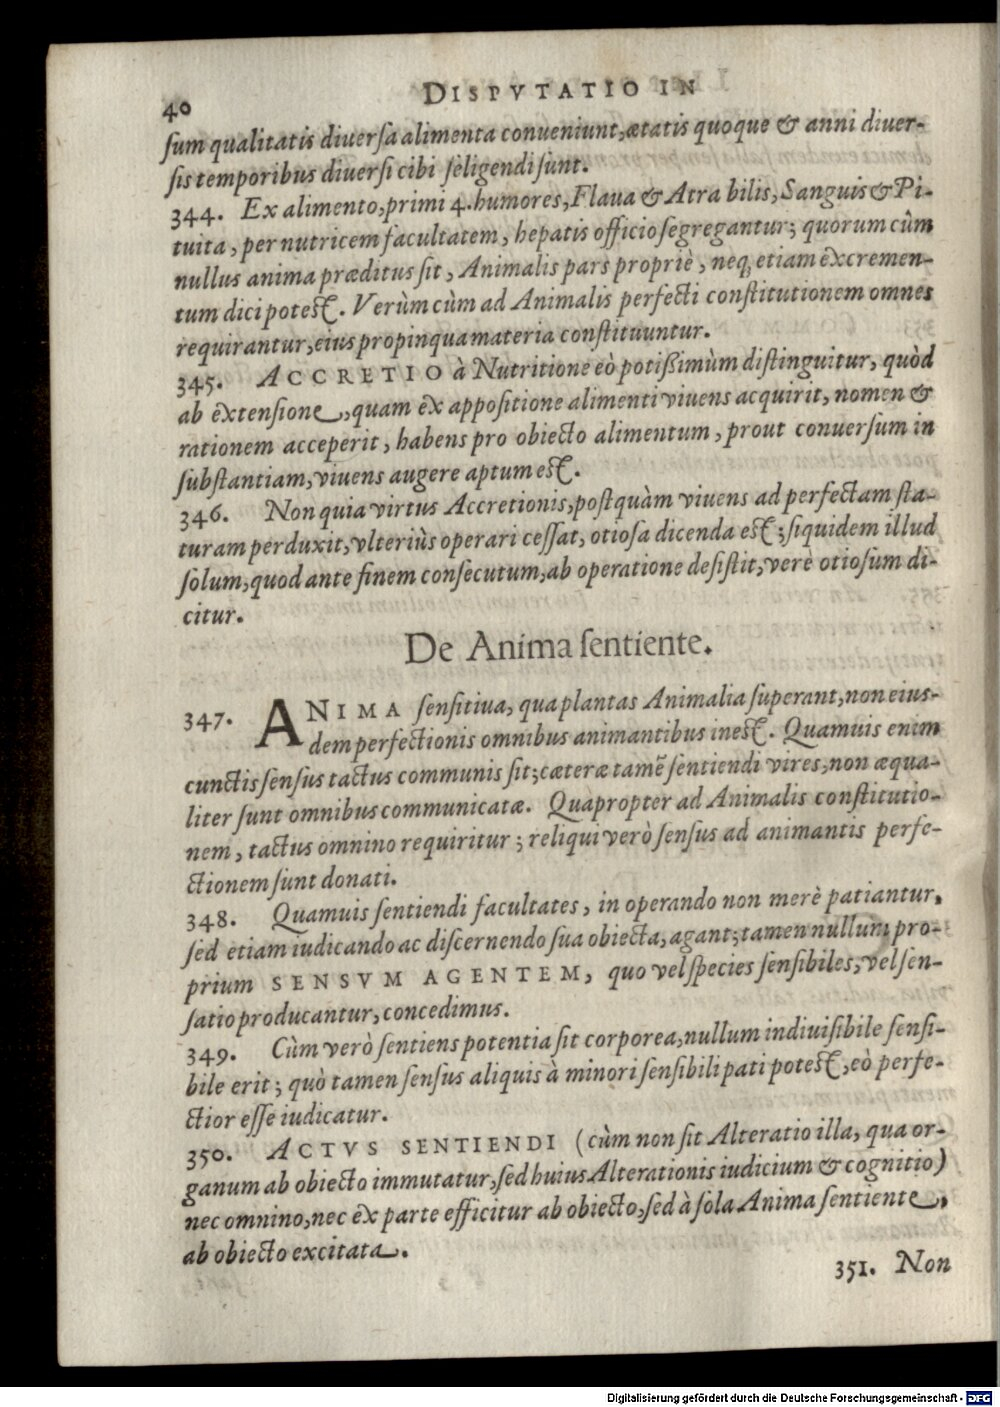 40
DISPVTATIO IN
sum qualitatis diuersa alimenta conueniunt, ætatis quoque & anni diuer-
sis temporibus diuersi cibi seligendi sunt.
344. Ex alimento, primi 4. humores, Flaua & Atra bilis, Sanguis & Pi-
tuita, per nutricem facultatem, hepatis officio segregantur; quorum cùm
nullus anima præditus sit, Animalis pars propriè, neq; etiam excremen-
tum dici potest. Verùm cùm ad Animalis perfecti constitutionem omnes
requirantur, eius propinqua materia constituuntur.
345. ACCRETIO à Nutritione eò potißimùm distinguitur, quòd
ab extensione, quam ex appositione alimenti viuens acquirit, nomen &
rationem acceperit, habens pro obiecto alimentum, prout conuersum in
substantiam, viuens augere aptum est.
346. Non quia virtus Accretionis, postquàm viuens ad perfectam sta-
turam perduxit, vlteriùs operari cessat, otiosa dicenda est; siquidem illud
solum, quod ante finem consecutum, ab operatione desistit, verè otiosum di-
citur.
De Anima sentiente.
347. ANIMA sensitiua, qua plantas Animalia superant, non eius-
dem perfectionis omnibus animantibus inest. Quamuis enim
cunctis sensus tactus communis sit; cæteræ tamē sentiendi vires, non æqua-
liter sunt omnibus communicatæ. Quapropter ad Animalis constitutio-
nem, tactus omnino requiritur; reliqui verò sensus ad animantis perfe-
ctionem sunt donati.
348. Quamuis sentiendi facultates, in operando non merè patiantur,
sed etiam iudicando ac discernendo sua obiecta, agant; tamen nullum pro-
prium SENSVM AGENTEM, quo vel species sensibiles, vel sen-
satio producantur, concedimus.
349. Cùm verò sentiens potentia sit corporea, nullum indiuisibile sensi-
bile erit; quò tamen sensus aliquis à minori sensibili pati potest, eò perfe-
ctior esse iudicatur.
350. ACTVS SENTIENDI (cùm non sit Alteratio illa, qua or-
ganum ab obiecto immutatur, sed huius Alterationis iudicium & cognitio)
nec omnino, nec ex parte efficitur ab obiecto, sed à sola Anima sentiente,
ab obiecto excitata.
351. Non
Digitalisierung gefördert durch die Deutsche Forschungsgemeinschaft - DFG